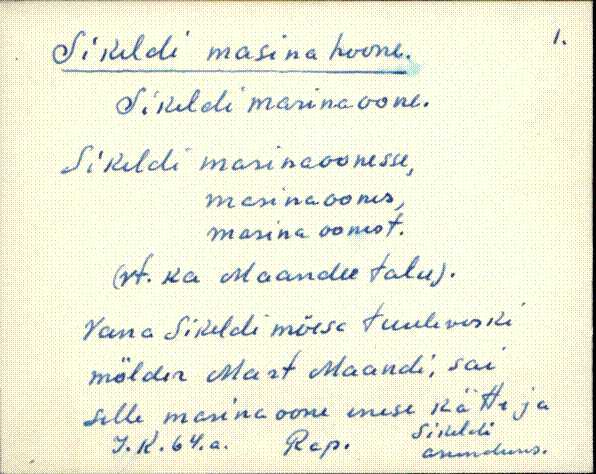 1.
Sikeldi masina hoone.
Sikeldi masinaoone.
Sikeldi masinaoonesse,
masinaoones,
masinaoonest.
(vt. ka Maandee talu).
Vana Sikeldi mõesa tuuleveski
mölder Mart Maandi, sai
selle masinaoone enese kätte ja
J.K. 64.a. Rap. Sikeldi
asundus.